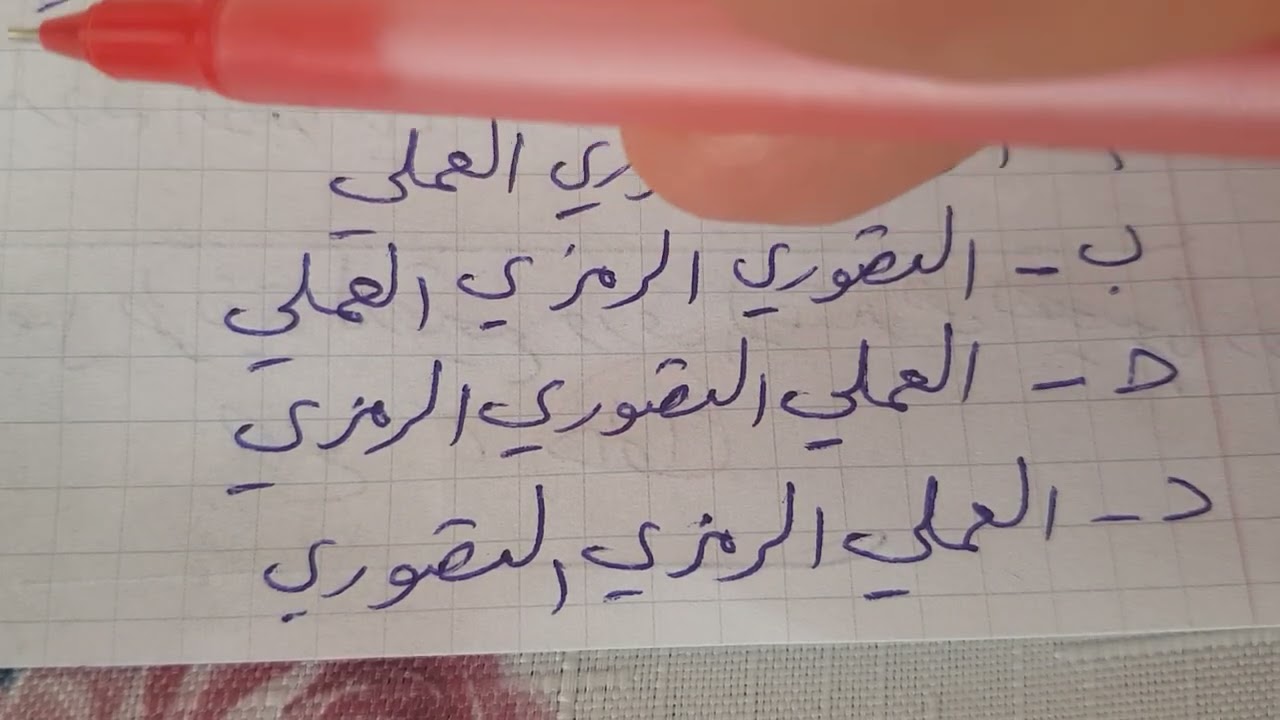 العملي
ب - التصوري الرمزي العملي
ح - العملي التصوري الرمزي
د - العملي الرمزي التصوري